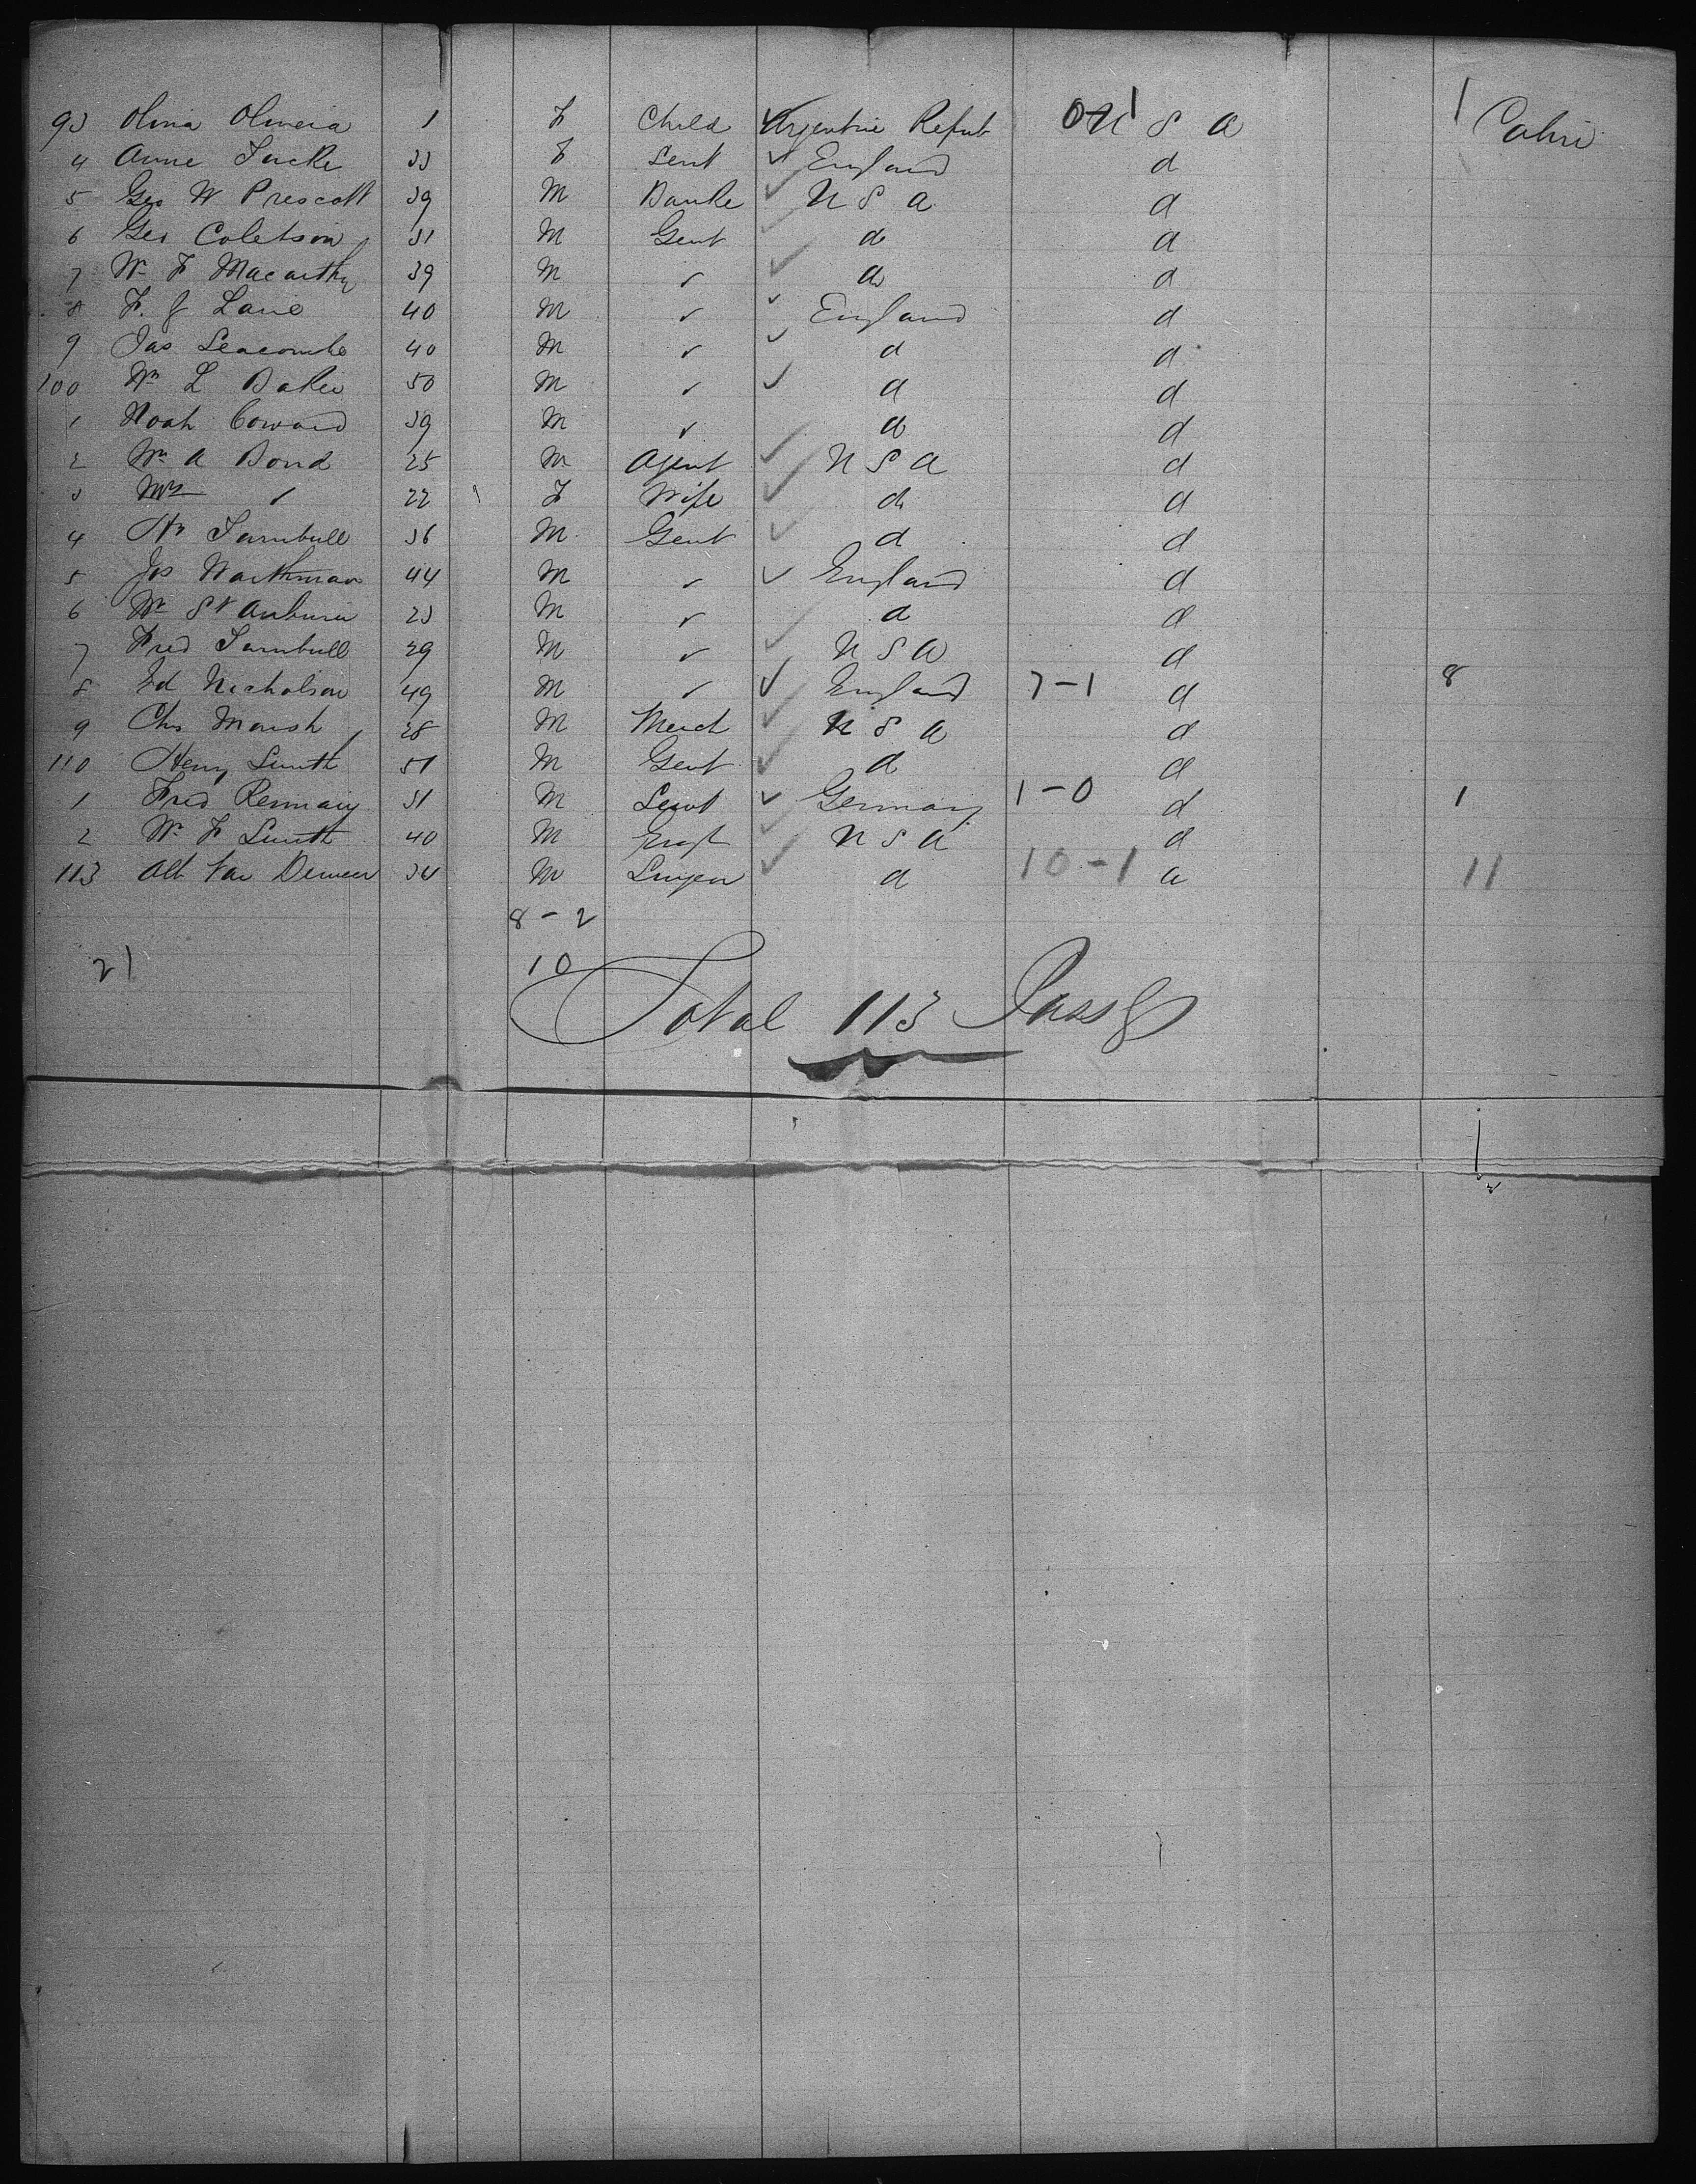 93 Olivia Oliveira 1 F Child Argentine Repub 0-1 U S A 1 Cabin
4 Anne Tucke 33 F Servt England d
5 Geo W Prescott 39 M Banke U S A d
6 Geo Coletson 31 M Gent do d
7 Wm F Macarthy 39 M ✓ do d
8 F. J Lane 40 M ✓ England d
9 Jas Seacombe 40 M ✓ d d
100 Wm L Baker 50 M ✓ d d
1 Noah Coward 39 M ✓ do d
2 Wm A Bond 25 M Agent U S A d
3 Mrs ✓ 22 F Wife do d
4 Wm Turnbull 36 M Gent d d
5 Jos 44 M ✓ England d
6 Wm St 23 M ✓ d d
7 Fred Turnbull 29 M ✓ U S A d
8 Ed Nicholson 49 M ✓ England 7-1 d 8
9 Chs Marsh 28 M Merch U S A d
110 Henry Smith 51 M Gent d d
1 Fred 31 M Servt Germany 1-0 d 1
2 Wm F Smith 40 M U S A d
113 Alb Van 34 M d 10-1 d 11
8-2
21 10
Total 113 Passg